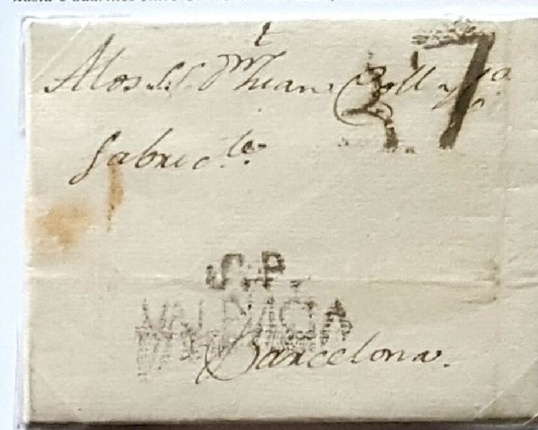 t
A los S.S. Dn. Juan Coll y Cª
7
fabric.tes
S.P.
VALENCIA
Barcelona.